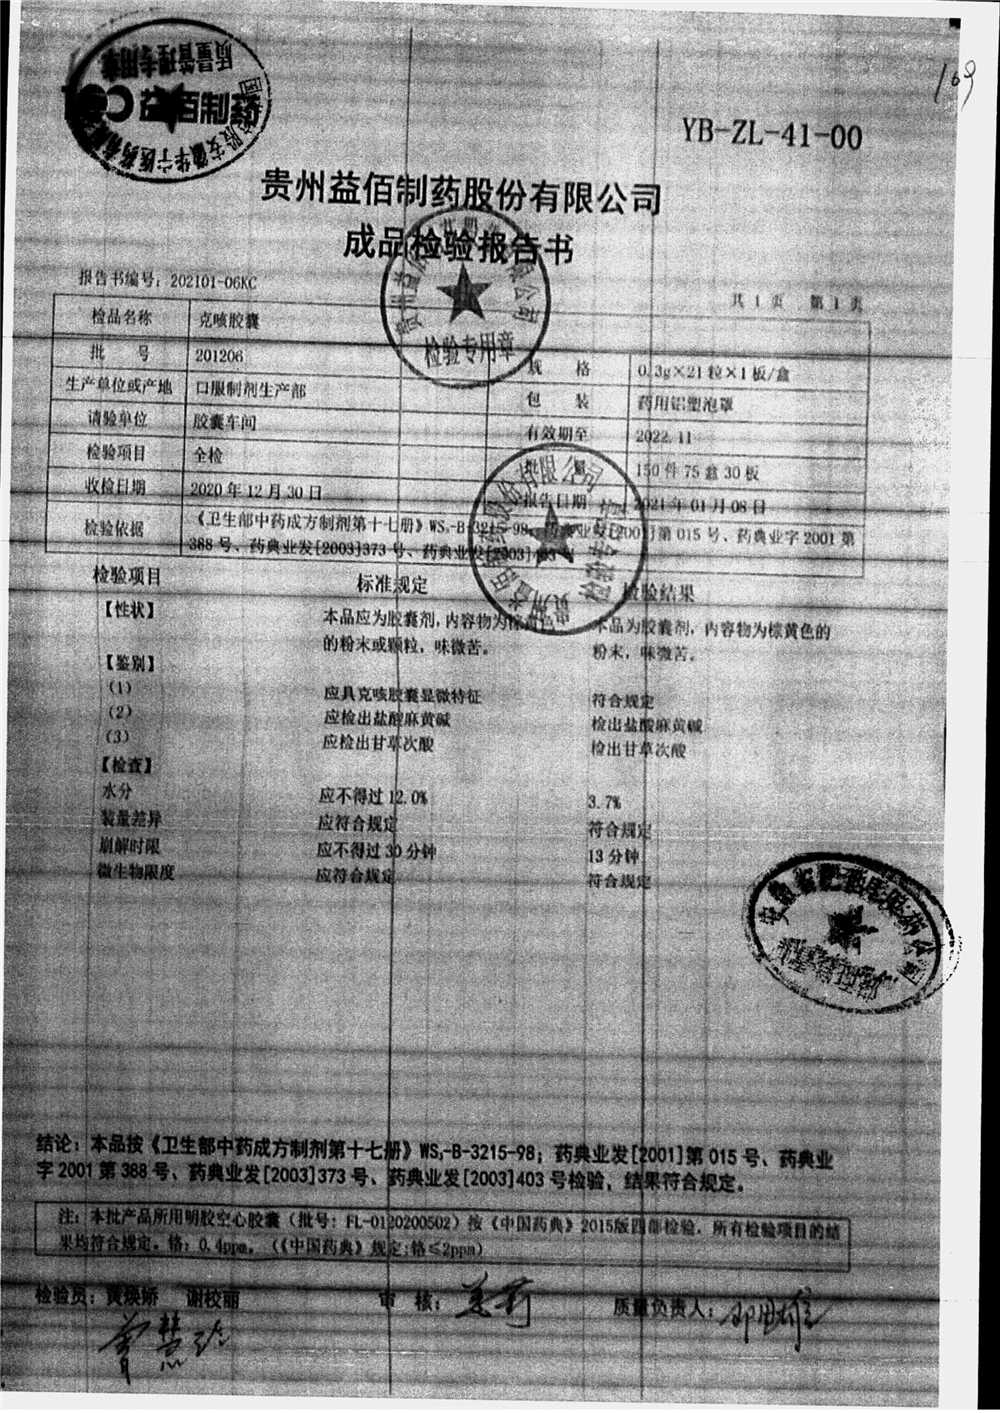 169
YB-ZL-41-00
质量管理专用章
益佰制药
贵州益佰制药股份有限公司
成品检验报告书
报告书编号：202101-06KC
共 1 页 第 1 页
检品名称 克咳胶囊
批 号 201206 规 格 0.3g×21粒×1板/盒
生产单位或产地 口服制剂生产部 包 装 药用铝塑泡罩
请验单位 胶囊车间 有效期至 2022.11
检验项目 全检 批 量 150件75盒30板
收检日期 2020年12月30日 报告日期 2021年01月08日
检验依据 《卫生部中药成方制剂第十七册》WS₃-B-3215-98、药典业发[2001]第015号、药典业字2001第
388号、药典业发[2003]373号、药典业发[2003]403号
检验专用章
检验项目 标准规定 检验结果
【性状】 本品应为胶囊剂，内容物为棕黄色 本品为胶囊剂，内容物为棕黄色的
的粉末或颗粒，味微苦。 粉末，味微苦。
【鉴别】
(1) 应具克咳胶囊显微特征 符合规定
(2) 应检出盐酸麻黄碱 检出盐酸麻黄碱
(3) 应检出甘草次酸 检出甘草次酸
【检查】
水分 应不得过12.0% 3.7%
装量差异 应符合规定 符合规定
崩解时限 应不得过30分钟 13分钟
微生物限度 应符合规定 符合规定
质量管理部
结论：本品按《卫生部中药成方制剂第十七册》WS₃-B-3215-98；药典业发[2001]第015号、药典业
字2001第388号、药典业发[2003]373号、药典业发[2003]403号检验，结果符合规定。
注：本批产品所用明胶空心胶囊（批号：FL-0120200502）按《中国药典》2015版四部检验，所有检验项目的结
果均符合规定。铬：0.4ppm。（《中国药典》规定:铬≤2ppm）
检验员：黄焕娇 谢校丽 审 核： 质量负责人：